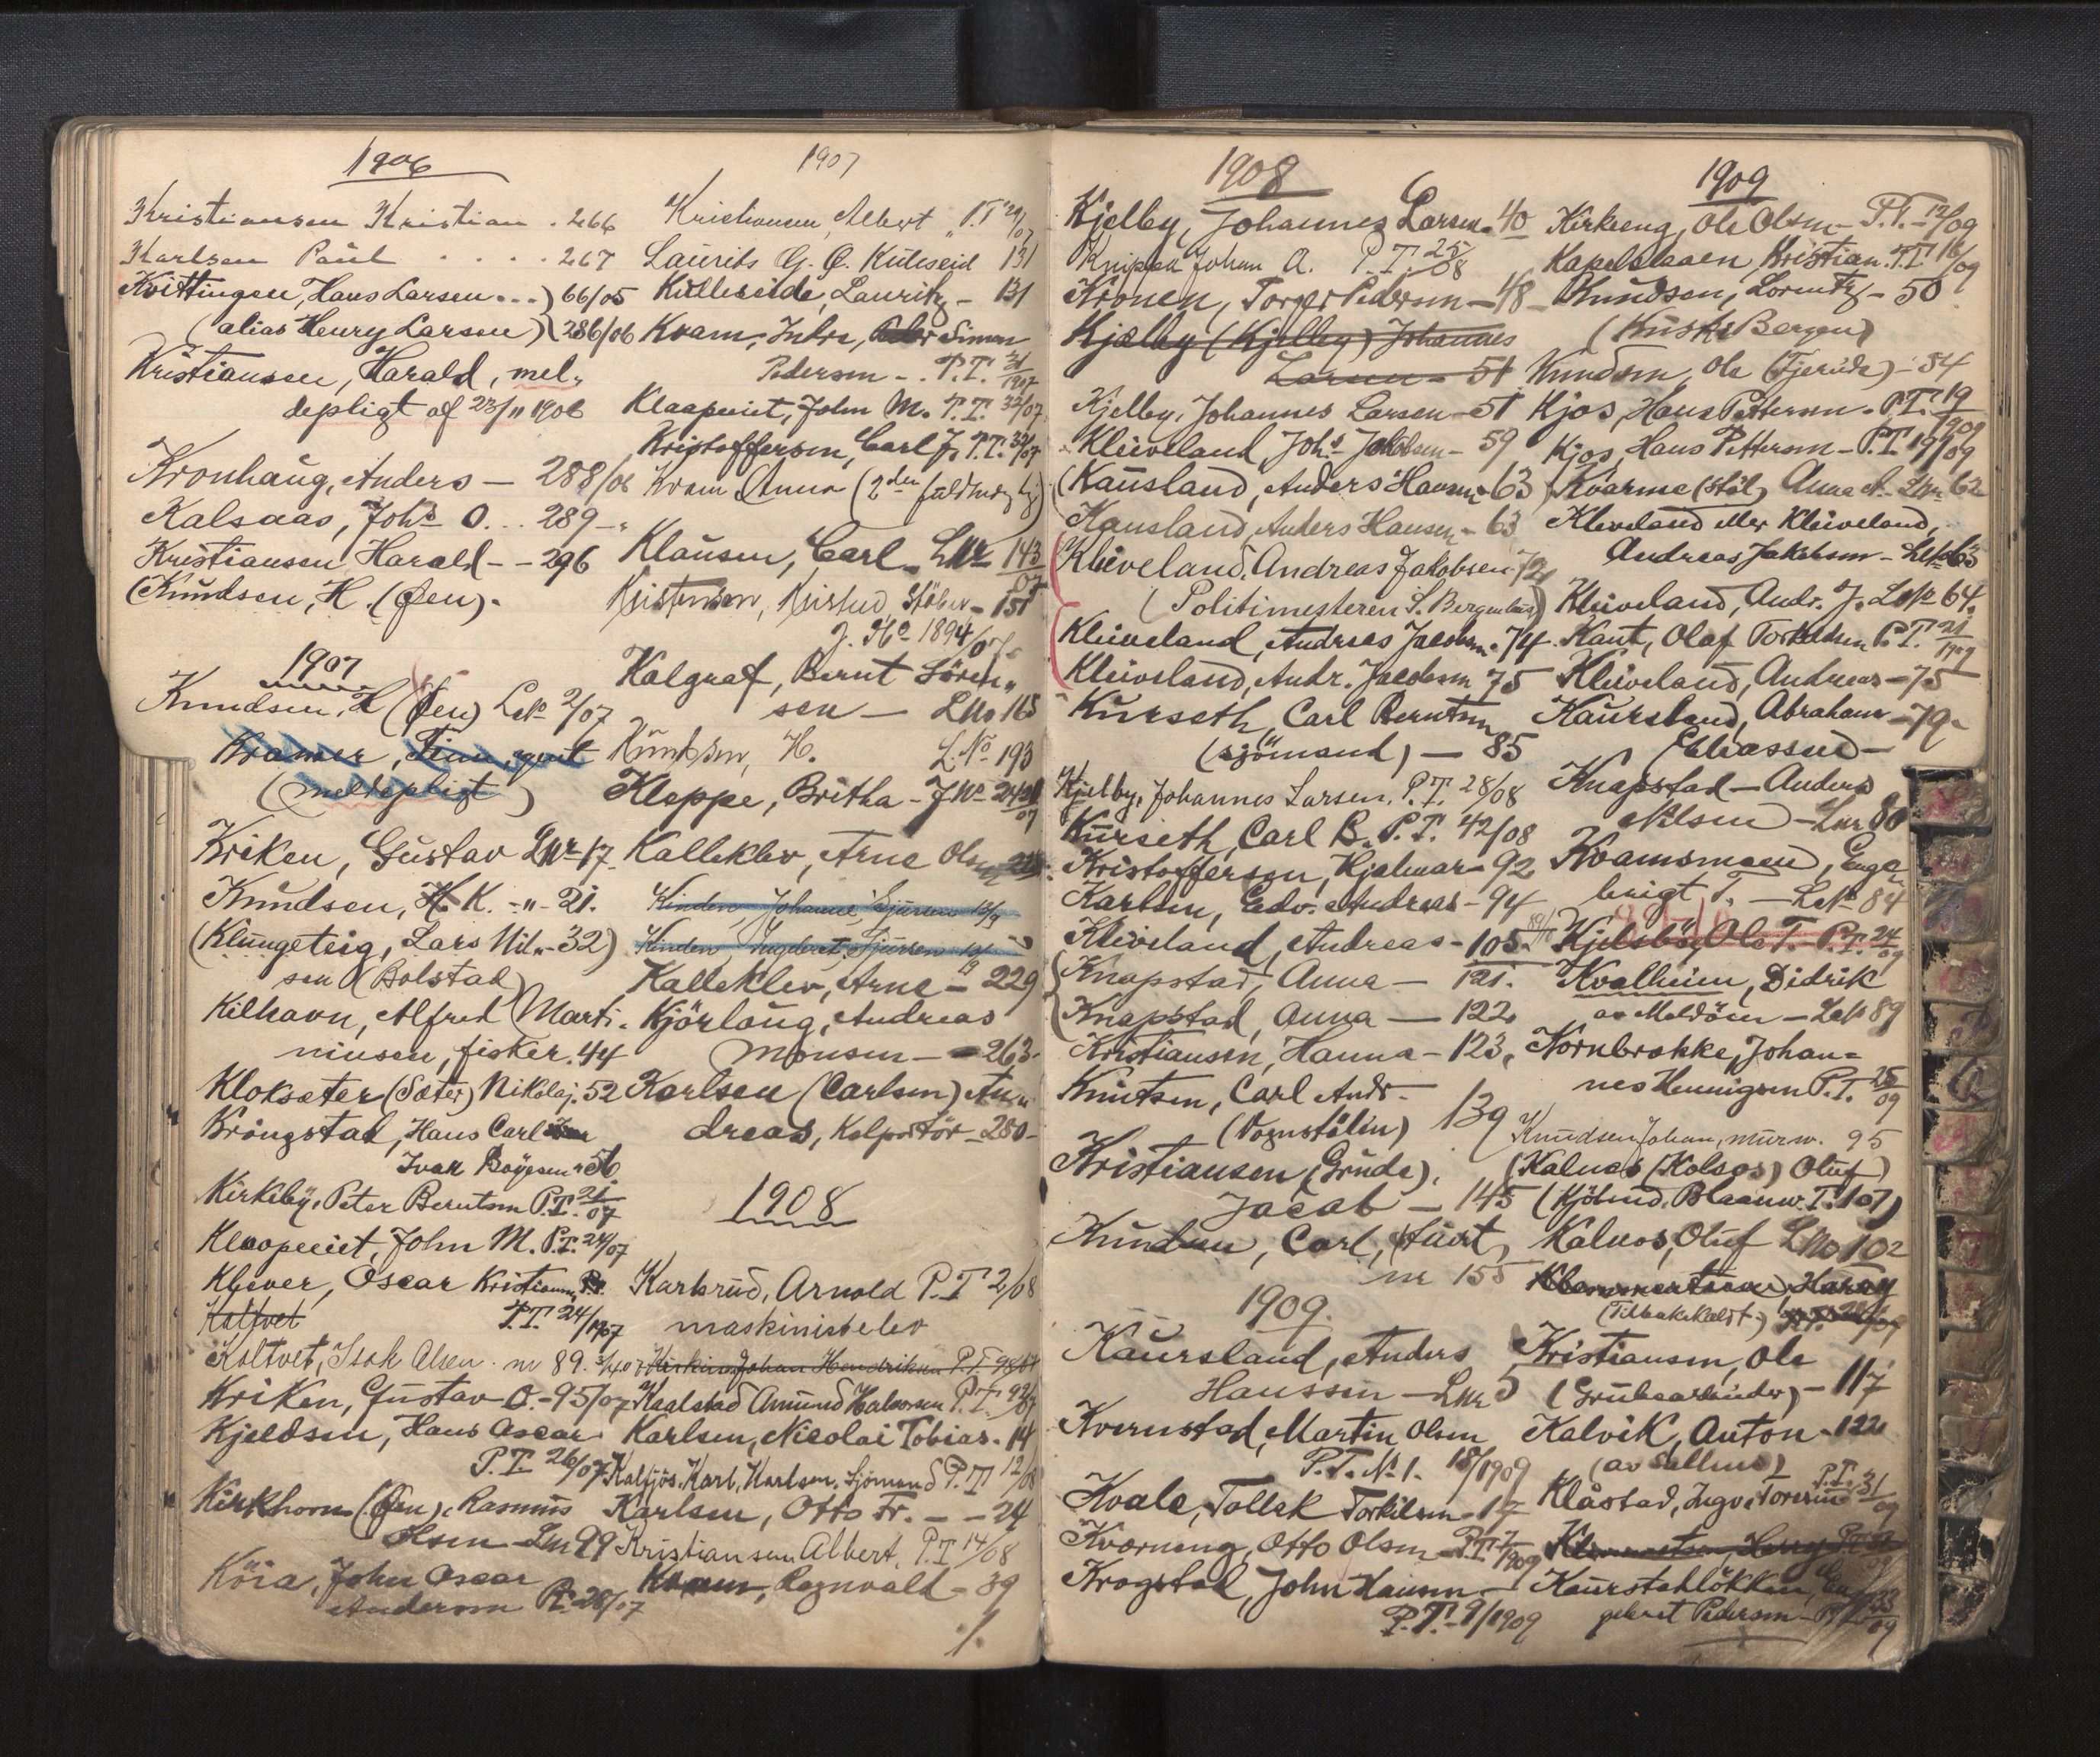 1906
Kristiansen Kristian . 266
Karlsen Paul . . . . . 267
Kvittingen, Hans Larsen ... ) 66/05
(alias Henry Larsen) ( 286/06
Kristiansen, Harald, mel-
depligt af 23/11 1906
Kronhaug, Anders — 288/06
Kalsaas, Johs O. .. 289 -
Kristiansen Harald - - 296
(Knudsen, H. (Øen).
1907
Knudsen, H (Øen) LNo 2/07
Kramer,
(meldepligt)
Kriken, Gustav LNr 17
Knudsen, H. K. -"- 21.
(Klungeteig, Lars Nil- 32)
sen (Bolstad)
Kilhavn, Alfred Marti-
niusen, fisker. 44
Kloksæter (Sæter) Nikolaj. 52
Krongstad, Hans Carl
Ivar Bøyesen 56
Kirkeby, Peter Berntsen P.T. 21/07
Klaapeeiet, John M. P.T. 24/07
Klever, Oscar Kristiansen P.T.
Koltvet P.T. 24/1907
Koltvet, Isak Olsen. nr 89.
Kriken, Gustav O. - 95/07
Kjeldsen, Hans Oscar
P.T. 26/07
Kirkhorn (Øen), Rasmus
Olsen LNr 99
Köia, John Oscar
Andersen P.T. 28/07
1907
Kristiansen, Albert P.T. 29/07
Laurits G. G. Kuleseid 131
Kulleseide, Lauritz - 131
Kvam, Indre, Simon
Pedersen - . P.T. 31/1907
Klaapeeiet, John M. P.T. 32/07
Kristoffersen, Carl J. P.T. 32/07
Kvam Anna
Klausen, Carl LNr 143/07
Kristensen, Støber - 151
J. No 1894/07
Kalgraf, Bernt Sören-
sen — LNo 165
Knudsen, H. L.No 193
Kleppe, Britha - JNo
Kalleklev, Arne Olsen
Kinden Johanne Sjursen
Kinden Ingeborg Sjursen
Kalleklev, Arne - 229
Kjörlaug, Andreas
Monsen — 263.
Karlsen (Carlsen) An-
dreas, Kolportør - 280 -
1908
Karlsrud, Arnold P.T 2/08
maskinistelev
Johan Hendriksen P.T.
Kaalstad Amund Halvorsen P.T.
Karlsen, Nicolai Tobias. 14
Kalfjös, Karl, Karlsen. Sjömand P.T 12/08
Karlsen, Otto Fr. - - 24
Kristiansen Albert, P.T 14/08
Kvam, Ragnvald - 39
./.
1908
Kjelby, Johannes Larsen. 40
Knippen Johan A. P.T. 25/08
Kronen, Torger Pedersen - 48
Kjælby (Kjelby) Johannes
Larsen - 51
Kjelby, Johannes Larsen - 51
Kleiveland, Johs Jakobsen - 59
(Kausland, Anders Hansen 63
Kausland, Anders Hansen - 63
Kleiveland, Andreas Jakobsen 72
(Politimesteren S. Bergenhus)
Kleiveland, Andreas Jacobsen. 74
Kleiveland, Andr. Jacobsen 75
Kurseth, Carl Berntsen
(sjömand) — 85
Kjelby, Johannes Larsen. P.T. 28/08
Kurseth, Carl B. P.T. 42/08
Kristoffersen, Hjalmar - 92
Karlsen, Edv. Andreas - 94
Kleiveland, Andreas - 105.
(Knapstad, Anna — 121.
(Knapstad, Anna — 122
Kristiansen, Hanna - 123.
Knutsen, Carl Andr.
(Vognstölen) 139
Kristiansen (Grude),
Jacob — 145
Knudsen, Carl, Kurt,
nr 155
1909.
Kaursland, Anders
Hanssen — LNr 5
Kvernstad, Martin Olsen
P.T. No 1. 18/1909
Kvale, Tollek Torkilsen - 17
Kvorneng, Otto Olsen - P.T. 7/1909
Krogstad, John Hansen —
P.T. 9/1909
1909
Kirkeng, Ole Olsen - P.T. - 12/09
Kapelshaen, Kristian. P.T. 16/09
Knudsen, Lorentz - 50
(Kuste Bergen)
Knudsen, Ole (Tjerude) - 54
Kjos, Hans Pettersen. P.T. 19/1909
Kjos, Hans Pettersen - P.T. 19/09
Kvarme (Støl) Anna A. LNr 62
Kleveland eller Kleiveland,
Andreas Jakobsen - LNo 63
Kleiveland, Andr. J. LNo 64.
Kant, Olaf Torkildsen P.T. 21/1909
Kleiveland, Andreas - 75
Kaursland, Abraham - 79 -
Eliassen —
Knapstad — Anders
Nilsen — LNr 80
Kvamsmoen, Enge-
brigt T. — LNo 84
Kjelsbø Ole T. P.T. 24/09
Kvalheim, Didrik
av Meldöen — LNo 89
Kornbrekke, Johan-
nes Hennigsen P.T. 25/09
Knudsen Johan, murm. 95
(Kalnes (Kolsos) Oluf)
(Kjöbmd. Blaauw. T. 101)
Kalnos, Oluf LNo 102
Harry
(Tilbakekaldt)
Kristiansen, Ole
(Grubearbeider) - 117
Kalvik, Anton - 122
(av Sellnes)
Klåstad, Ingv. Toresen P.T. 31/09
Klemmetsen, Harry P.T.
Kaurstadlökken,
gebret Pedersen - P.T. 33/09